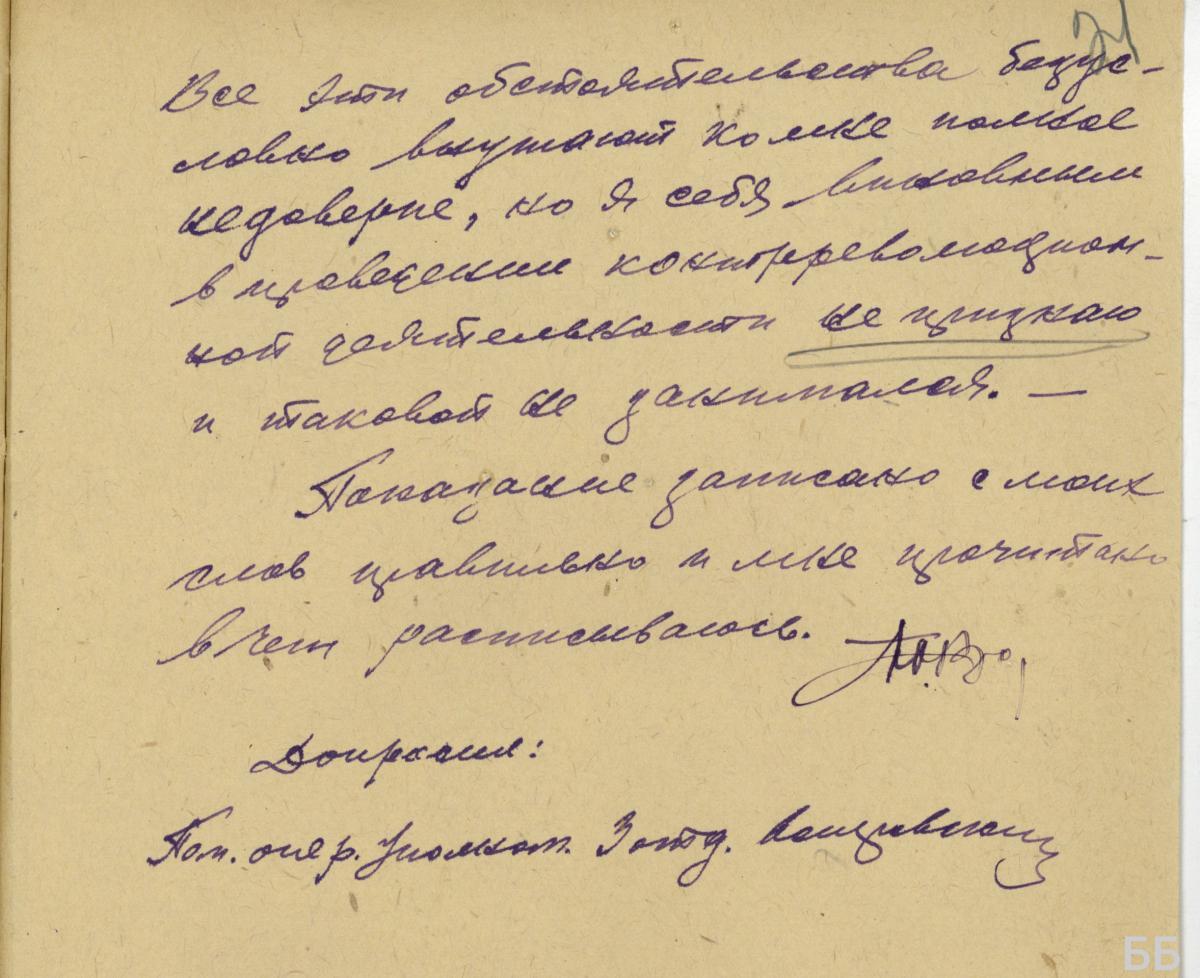 Все эти обстоятельства безус-
ловно внушают ко мне полное
недоверие, но я себя виновным
в проведении контрреволюцион-
ной деятельности не признаю
и таковой не занимался. —
Показание записано с моих
слов правильно и мне прочитано
в чем расписываюсь.
Допросил:
Пом. опер. Уполном. 3 отд.
ББ